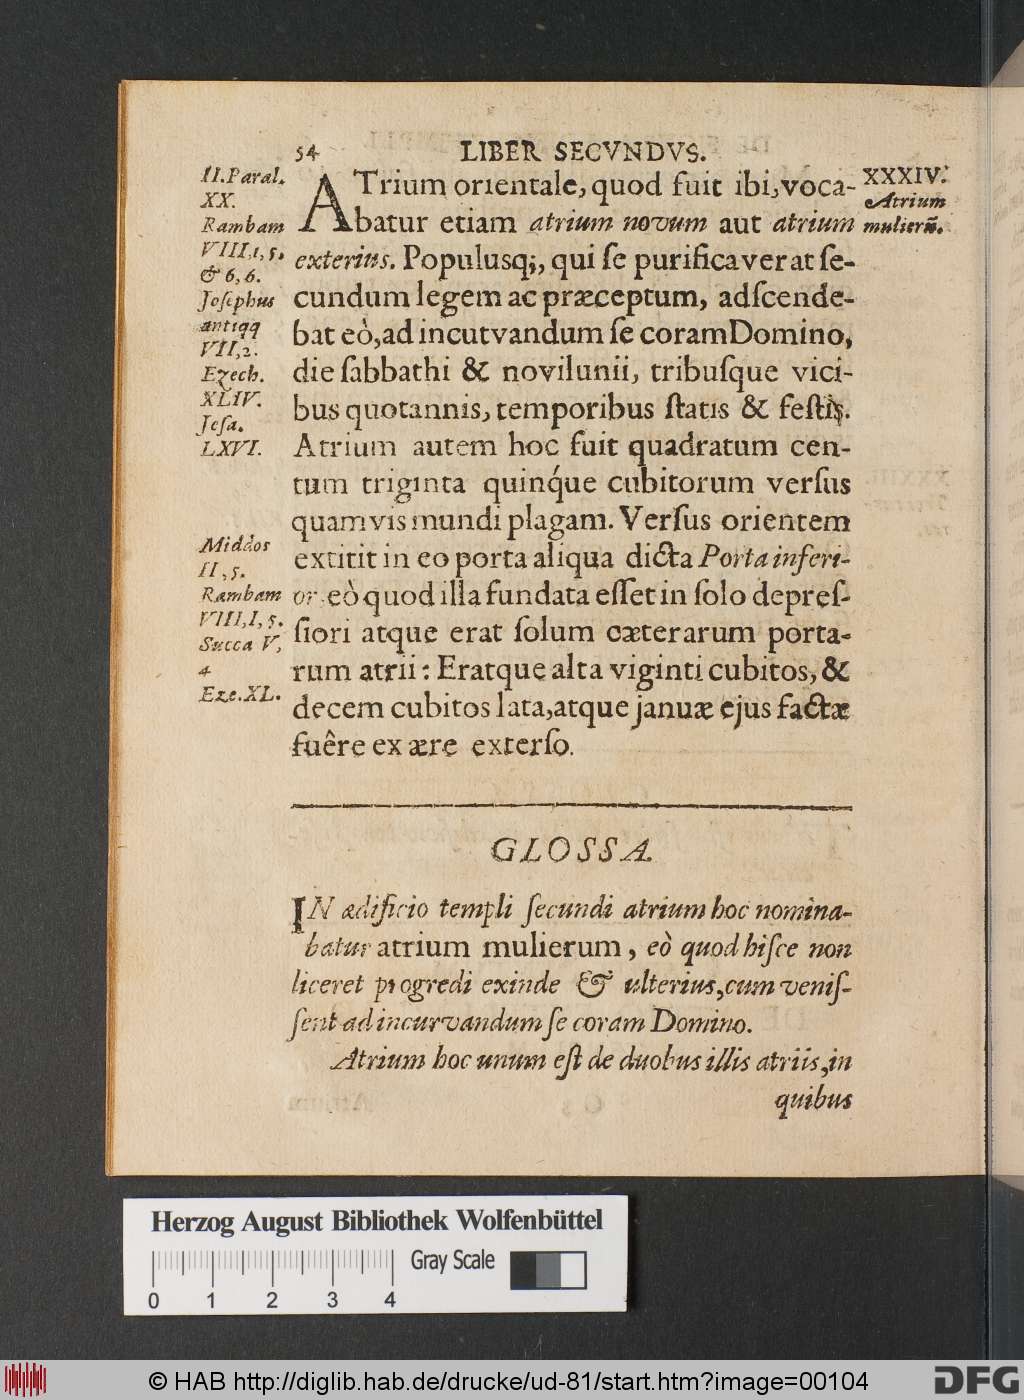 54 LIBER SECVNDVS.
II.Paral.
XX.
Rambam
VIII,1,5.
& 6,6.
Joſephus
antiqq
VII,2.
Ezech.
XLIV.
Jeſa.
LXVI.
XXXIV.
Atrium
mulierũ.
ATrium orientale, quod fuit ibi, voca-
batur etiam atrium novum aut atrium
exterius. Populusq;, qui ſe purificaverat ſe-
cundum legem ac præceptum, adſcende-
bat eò, ad incutvandum ſe coram Domino,
die ſabbathi & novilunii, tribuſque vici-
bus quotannis, temporibus ſtatis & feſtis.
Atrium autem hoc fuit quadratum cen-
tum triginta quinq́ue cubitorum verſus
quamvis mundi plagam. Verſus orientem
extitit in eo porta aliqua dicta Porta inferi-
or, eò quod illa fundata eſſet in ſolo depreſ-
ſiori atque erat ſolum cæterarum porta-
rum atrii: Eratque alta viginti cubitos, &
decem cubitos lata, atque januæ ejus factæ
fuêre ex ære exterſo.
Middos
II,5.
Rambam
VIII,I,5.
Succa V,
4
Eze.XL.
GLOSSA.
IN ædificio templi ſecundi atrium hoc nomina-
batur atrium mulierum, eò quod hiſce non
liceret progredi exinde & ulterius, cum veniſ-
ſent ad incurvandum ſe coram Domino.
Atrium hoc unum eſt de duobus illis atriis, in
quibus
Herzog August Bibliothek Wolfenbüttel
Gray Scale
0 1 2 3 4
© HAB http://diglib.hab.de/drucke/ud-81/start.htm?image=00104
DFG